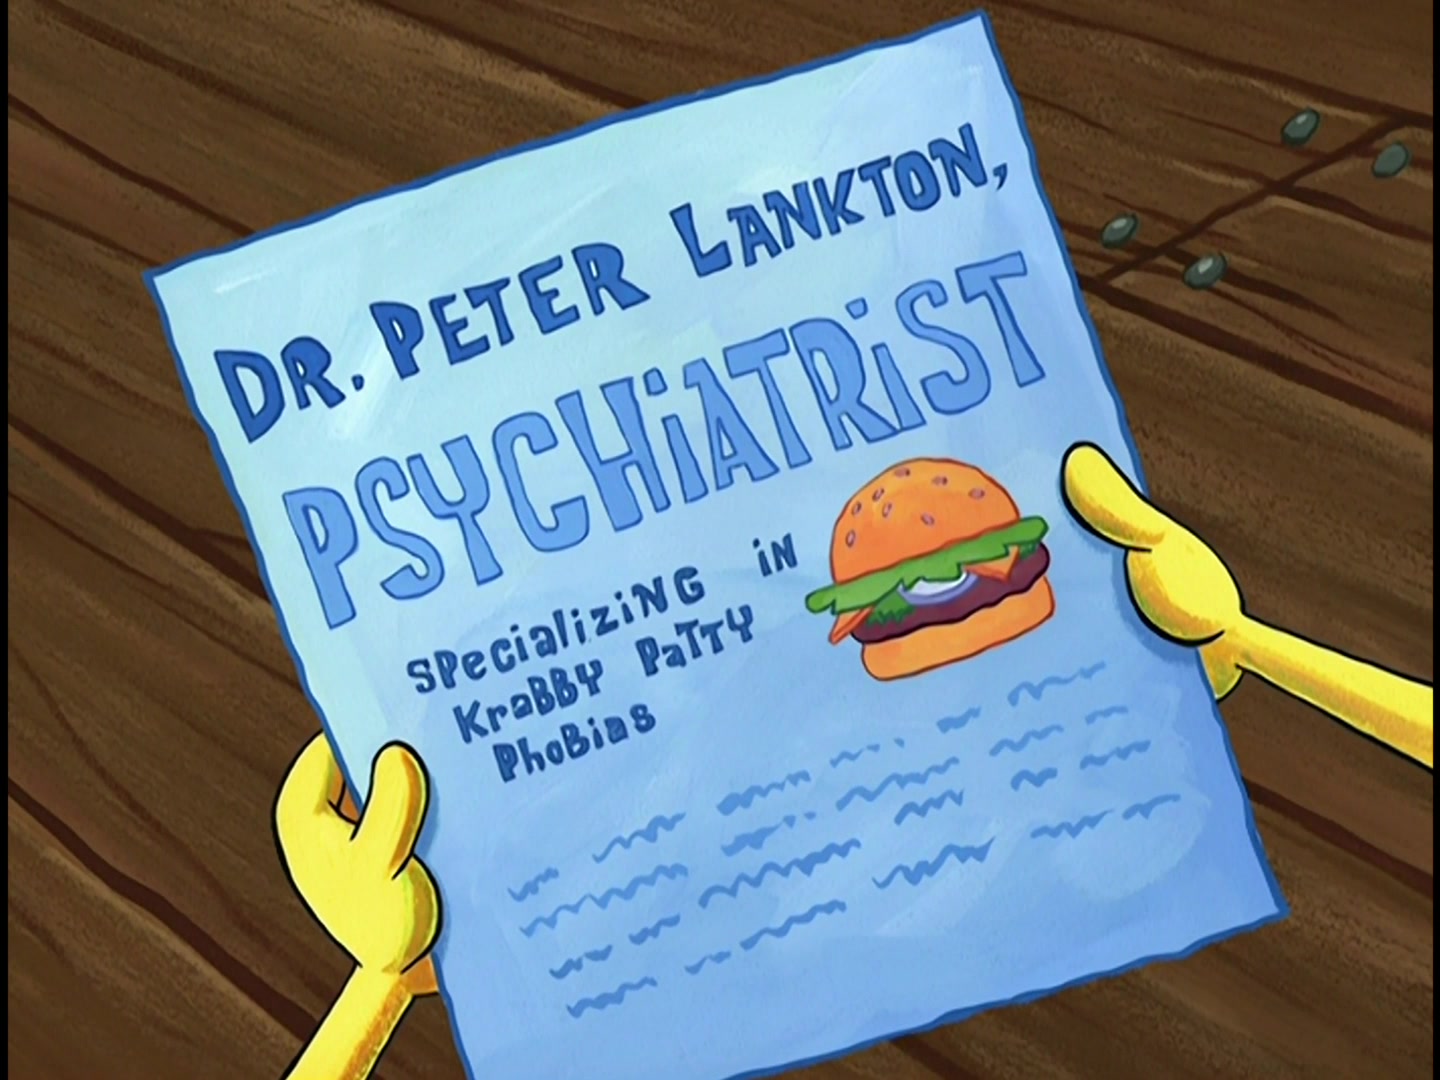 DR. PETER LANKTON,
PSYCHiATRiST
SPecializiNG iN
KraBBY PaTTY
PhoBias